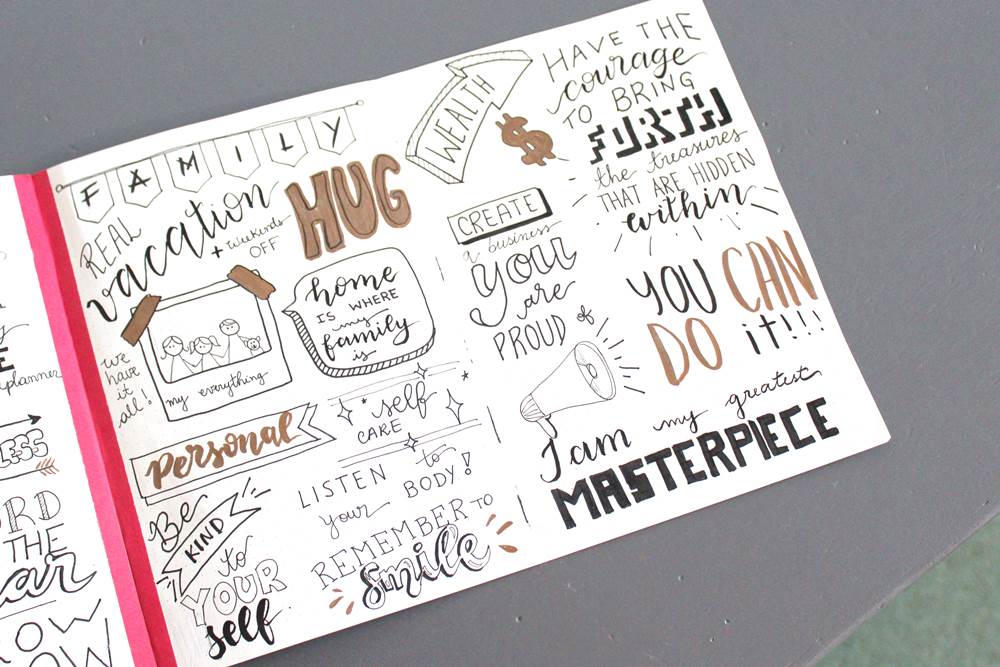 E
planner
LESS
ORD
THE
ar
OW
OW
FAMILY
REAL
vacation
+ weekends
OFF
HUG
we
have
it
all!
my everything
home
IS WHERE
my
family
is
Personal
self
CARE
Be
KIND
to
YOUR
self
LISTEN to
your BODY!
REMEMBER TO
smile
WEALTH
$
CREATE
a business
you
are
PROUD of
HAVE THE
courage
TO BRING
FORTH
the treasures
THAT ARE HIDDEN
within
YOU CAN
DO it!!!
I am my greatest
MASTERPIECE